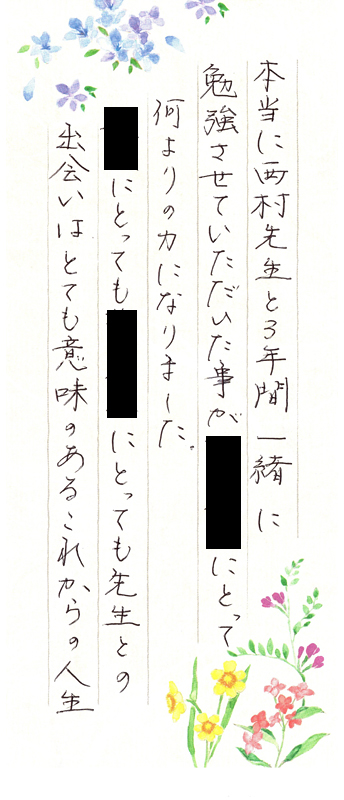 本当に西村先生と3年間一緒に
勉強させていただいた事が にとって
何よりの力になりました。
にとっても にとっても先生との
出会いはとても意味のあるこれからの人生